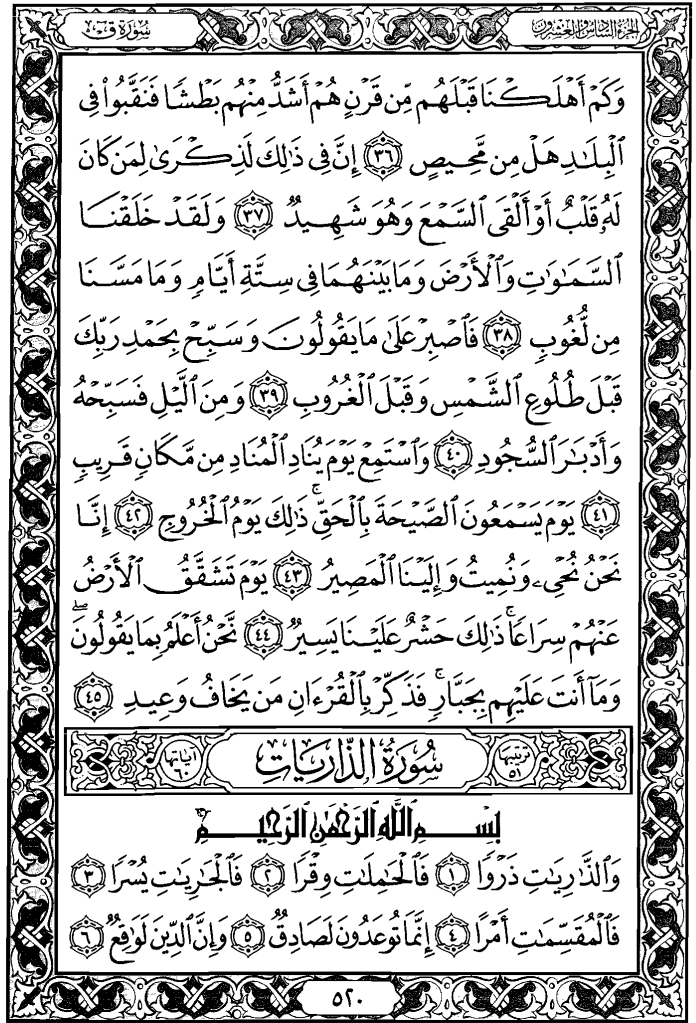 الجزء السادس والعشرون
سورة ق
وَكَمْ أَهْلَكْنَا قَبْلَهُم مِّن قَرْنٍ هُمْ أَشَدُّ مِنْهُم بَطْشًا فَنَقَّبُوا۟ فِى
ٱلْبِلَـٰدِ هَلْ مِن مَّحِيصٍ ٣٦ إِنَّ فِى ذَٰلِكَ لَذِكْرَىٰ لِمَن كَانَ
لَهُۥ قَلْبٌ أَوْ أَلْقَى ٱلسَّمْعَ وَهُوَ شَهِيدٌ ٣٧ وَلَقَدْ خَلَقْنَا
ٱلسَّمَـٰوَٰتِ وَٱلْأَرْضَ وَمَا بَيْنَهُمَا فِى سِتَّةِ أَيَّامٍ وَمَا مَسَّنَا
مِن لُّغُوبٍ ٣٨ فَٱصْبِرْ عَلَىٰ مَا يَقُولُونَ وَسَبِّحْ بِحَمْدِ رَبِّكَ
قَبْلَ طُلُوعِ ٱلشَّمْسِ وَقَبْلَ ٱلْغُرُوبِ ٣٩ وَمِنَ ٱلَّيْلِ فَسَبِّحْهُ
وَأَدْبَـٰرَ ٱلسُّجُودِ ٤٠ وَٱسْتَمِعْ يَوْمَ يُنَادِ ٱلْمُنَادِ مِن مَّكَانٍ قَرِيبٍ
٤١ يَوْمَ يَسْمَعُونَ ٱلصَّيْحَةَ بِٱلْحَقِّ ۚ ذَٰلِكَ يَوْمُ ٱلْخُرُوجِ ٤٢ إِنَّا
نَحْنُ نُحْىِۦ وَنُمِيتُ وَإِلَيْنَا ٱلْمَصِيرُ ٤٣ يَوْمَ تَشَقَّقُ ٱلْأَرْضُ
عَنْهُمْ سِرَاعًا ۚ ذَٰلِكَ حَشْرٌ عَلَيْنَا يَسِيرٌ ٤٤ نَّحْنُ أَعْلَمُ بِمَا يَقُولُونَ ۖ
وَمَآ أَنتَ عَلَيْهِم بِجَبَّارٍ ۖ فَذَكِّرْ بِٱلْقُرْءَانِ مَن يَخَافُ وَعِيدِ ٤٥
ترتيبها ٥١ سُورَةُ الذَّارِيَاتِ آياتها ٦٠
بِسْمِ ٱللَّهِ ٱلرَّحْمَـٰنِ ٱلرَّحِيمِ
وَٱلذَّٰرِيَـٰتِ ذَرْوًا ١ فَٱلْحَـٰمِلَـٰتِ وِقْرًا ٢ فَٱلْجَـٰرِيَـٰتِ يُسْرًا ٣
فَٱلْمُقَسِّمَـٰتِ أَمْرًا ٤ إِنَّمَا تُوعَدُونَ لَصَادِقٌ ٥ وَإِنَّ ٱلدِّينَ لَوَٰقِعٌ ٦
٥٢٠